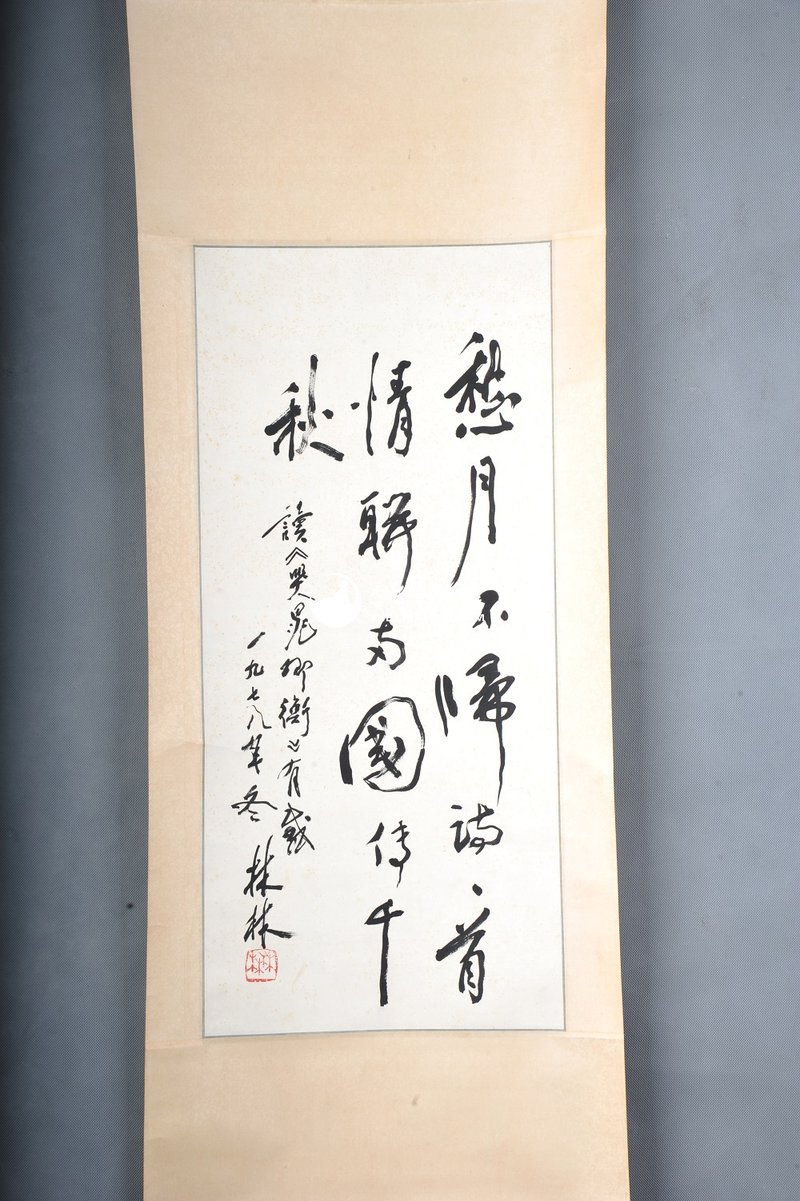 愁月不歸詩一首
情聯兩國傳千
秋
讀《哭晁卿衡》有感
一九七八年冬 林林
林林